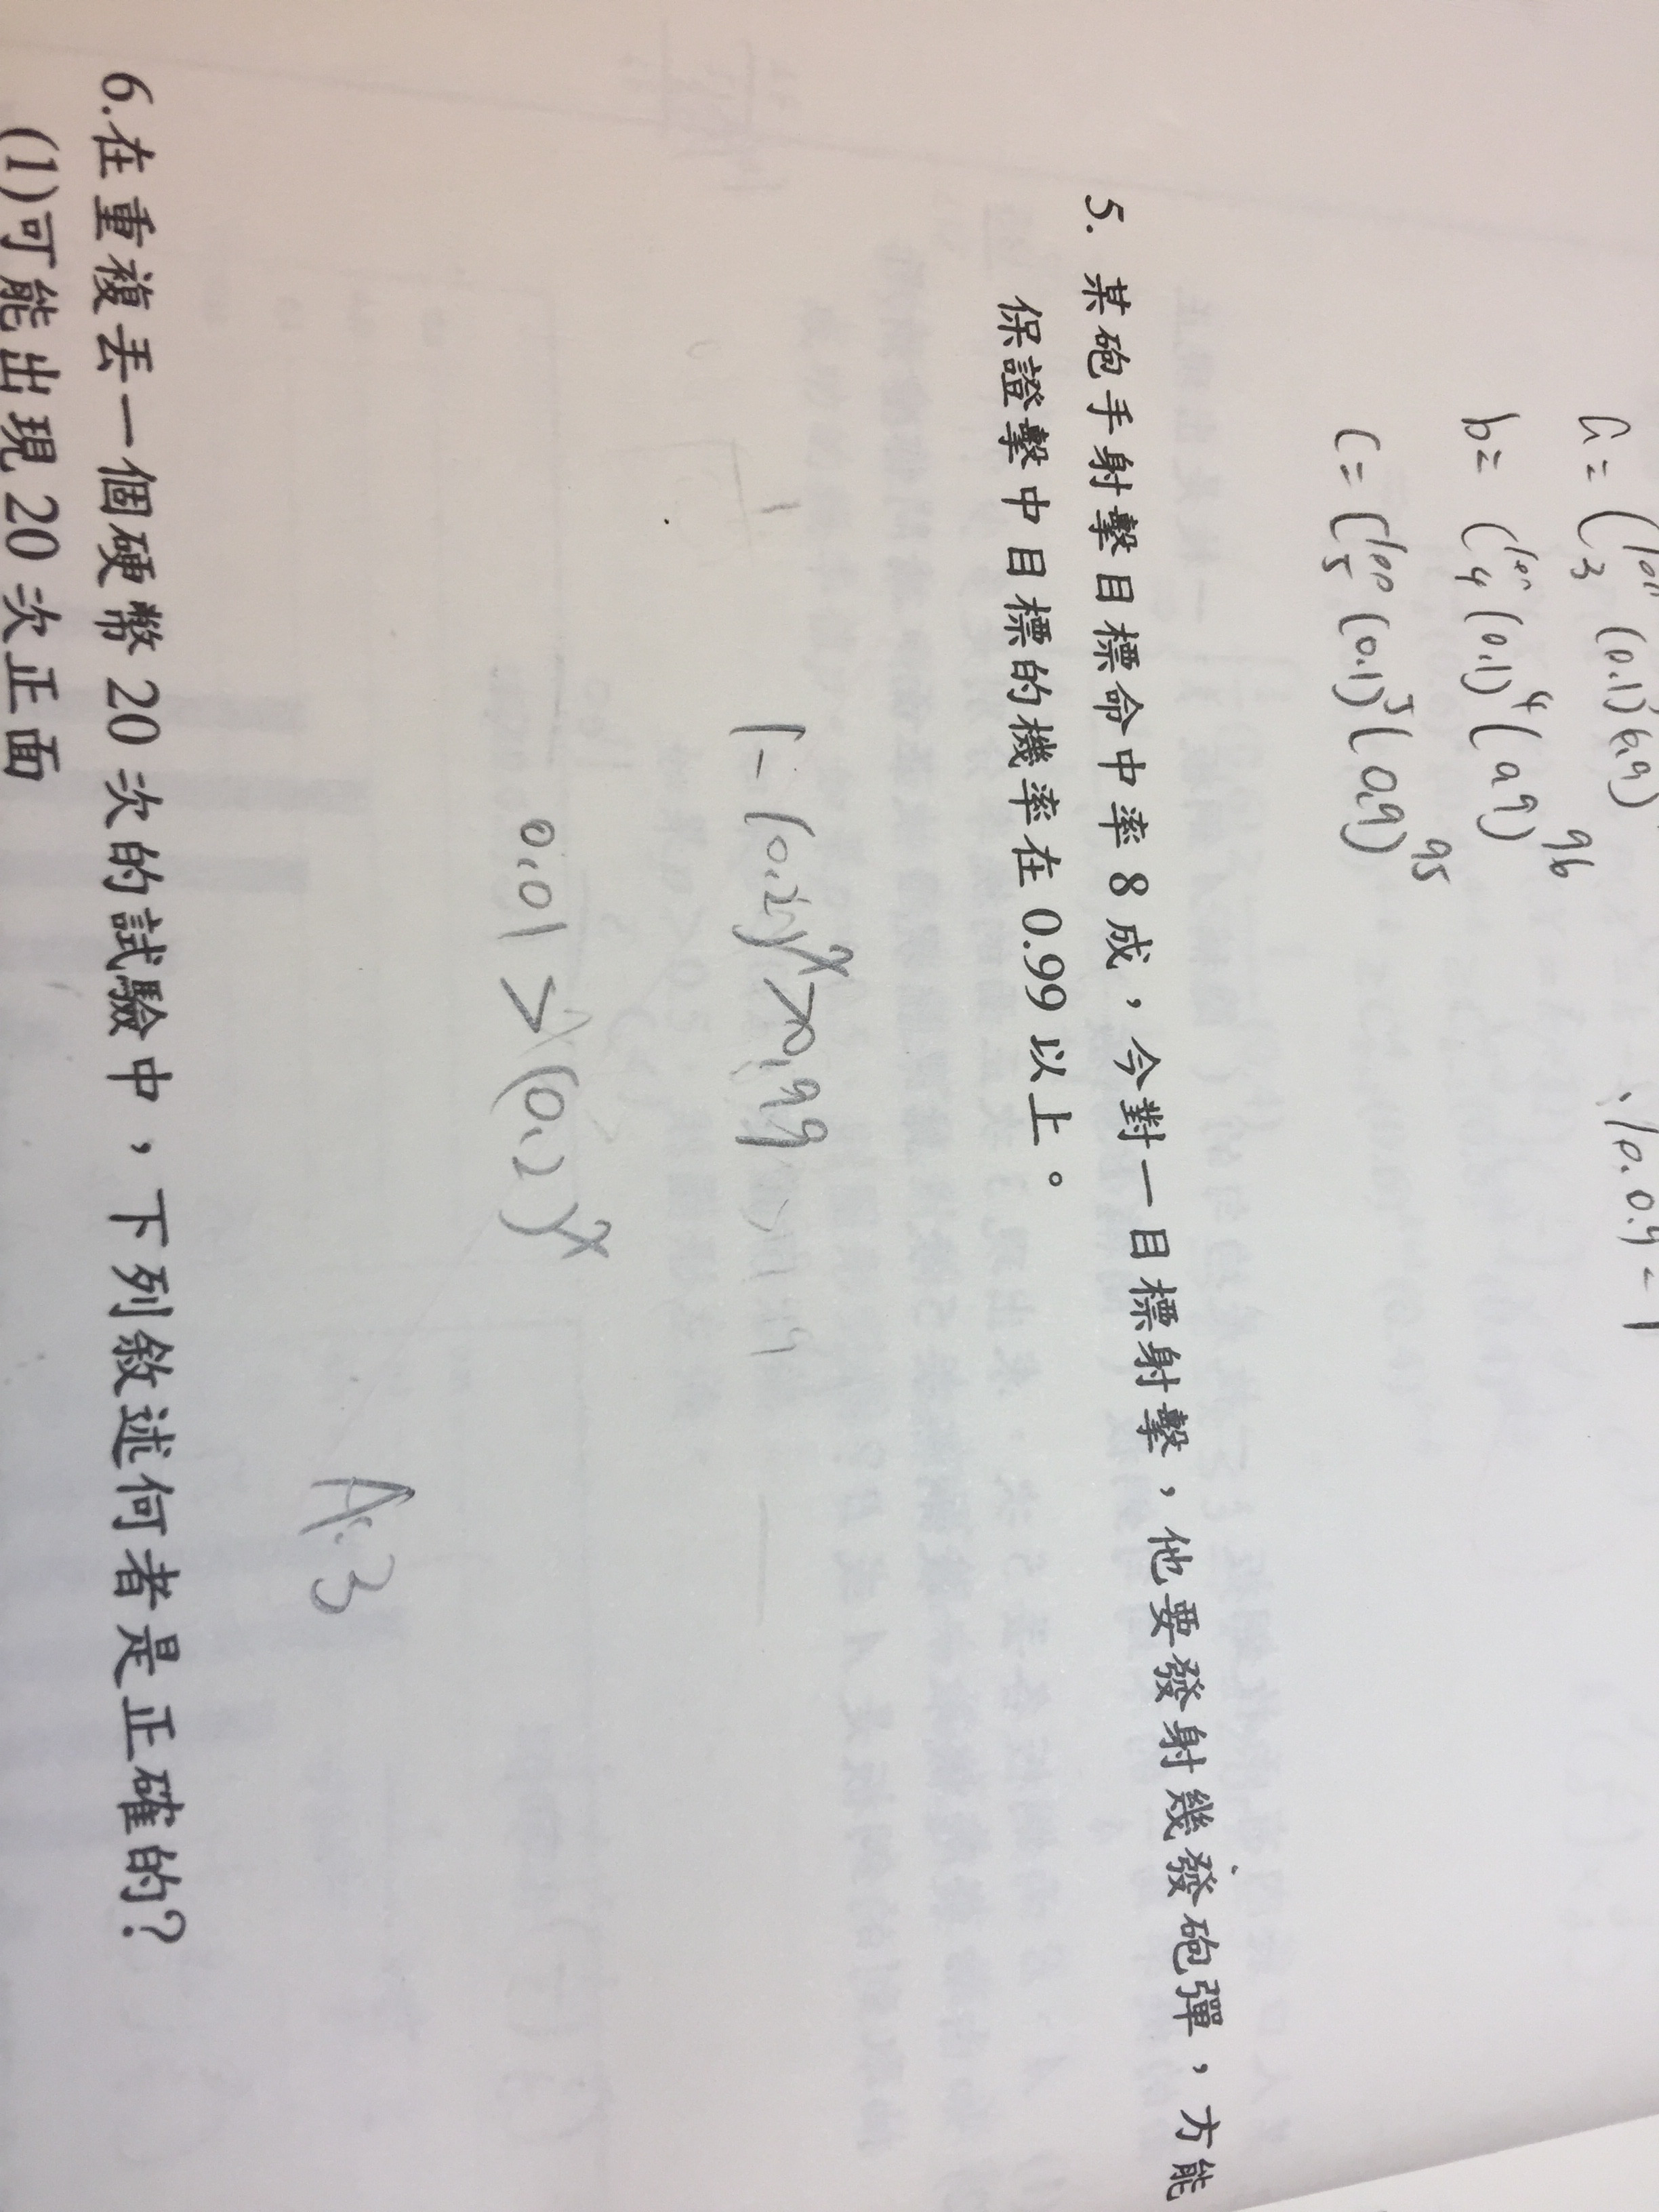 b= C¹⁰⁰₄ (0.1)⁴(0.9)⁹⁶
C= C¹⁰⁰₅ (0.1)⁵(0.9)⁹⁵
5. 某砲手射擊目標命中率 8 成，今對一目標射擊，他要發射幾發砲彈，方能
保證擊中目標的機率在 0.99 以上。
1-(0.2)ˣ>0.99
0.01>(0.2)ˣ
A:3
6.在重複丟一個硬幣 20 次的試驗中，下列敘述何者是正確的?
(1)可能出現 20 次正面